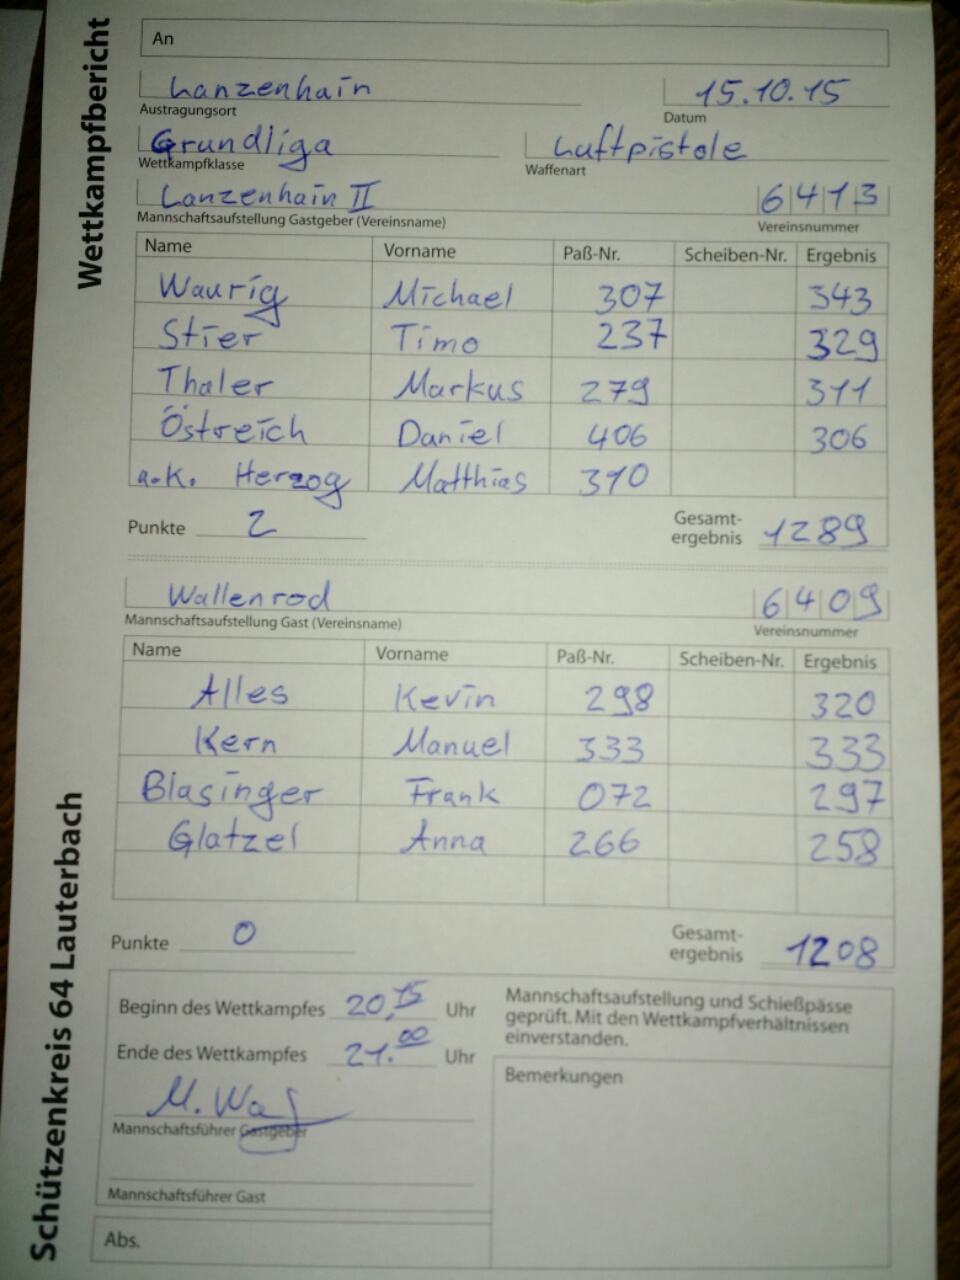 Wettkampfbericht
An
Lanzenhain 15.10.15
Austragungsort Datum
Grundliga Luftpistole
Wettkampfklasse Waffenart
Lanzenhain II 6413
Mannschaftsaufstellung Gastgeber (Vereinsname) Vereinsnummer
Name Vorname Paß-Nr. Scheiben-Nr. Ergebnis
Waurig Michael 307 343
Stier Timo 237 329
Thaler Markus 279 311
Östreich Daniel 406 306
a.K. Herzog Matthias 310
Punkte 2 Gesamt-
ergebnis 1289
Wallenrod 6409
Mannschaftsaufstellung Gast (Vereinsname) Vereinsnummer
Name Vorname Paß-Nr. Scheiben-Nr. Ergebnis
Alles Kevin 298 320
Kern Manuel 333 333
Blasinger Frank 072 297
Glatzel Anna 266 258
Punkte 0 Gesamt-
ergebnis 1208
Beginn des Wettkampfes 20.15 Uhr
Ende des Wettkampfes 21.00 Uhr
Mannschaftsaufstellung und Schießpässe
geprüft. Mit den Wettkampfverhältnissen
einverstanden.
Bemerkungen
M.
Mannschaftsführer Gastgeber
Mannschaftsführer Gast
Abs.
Schützenkreis 64 Lauterbach